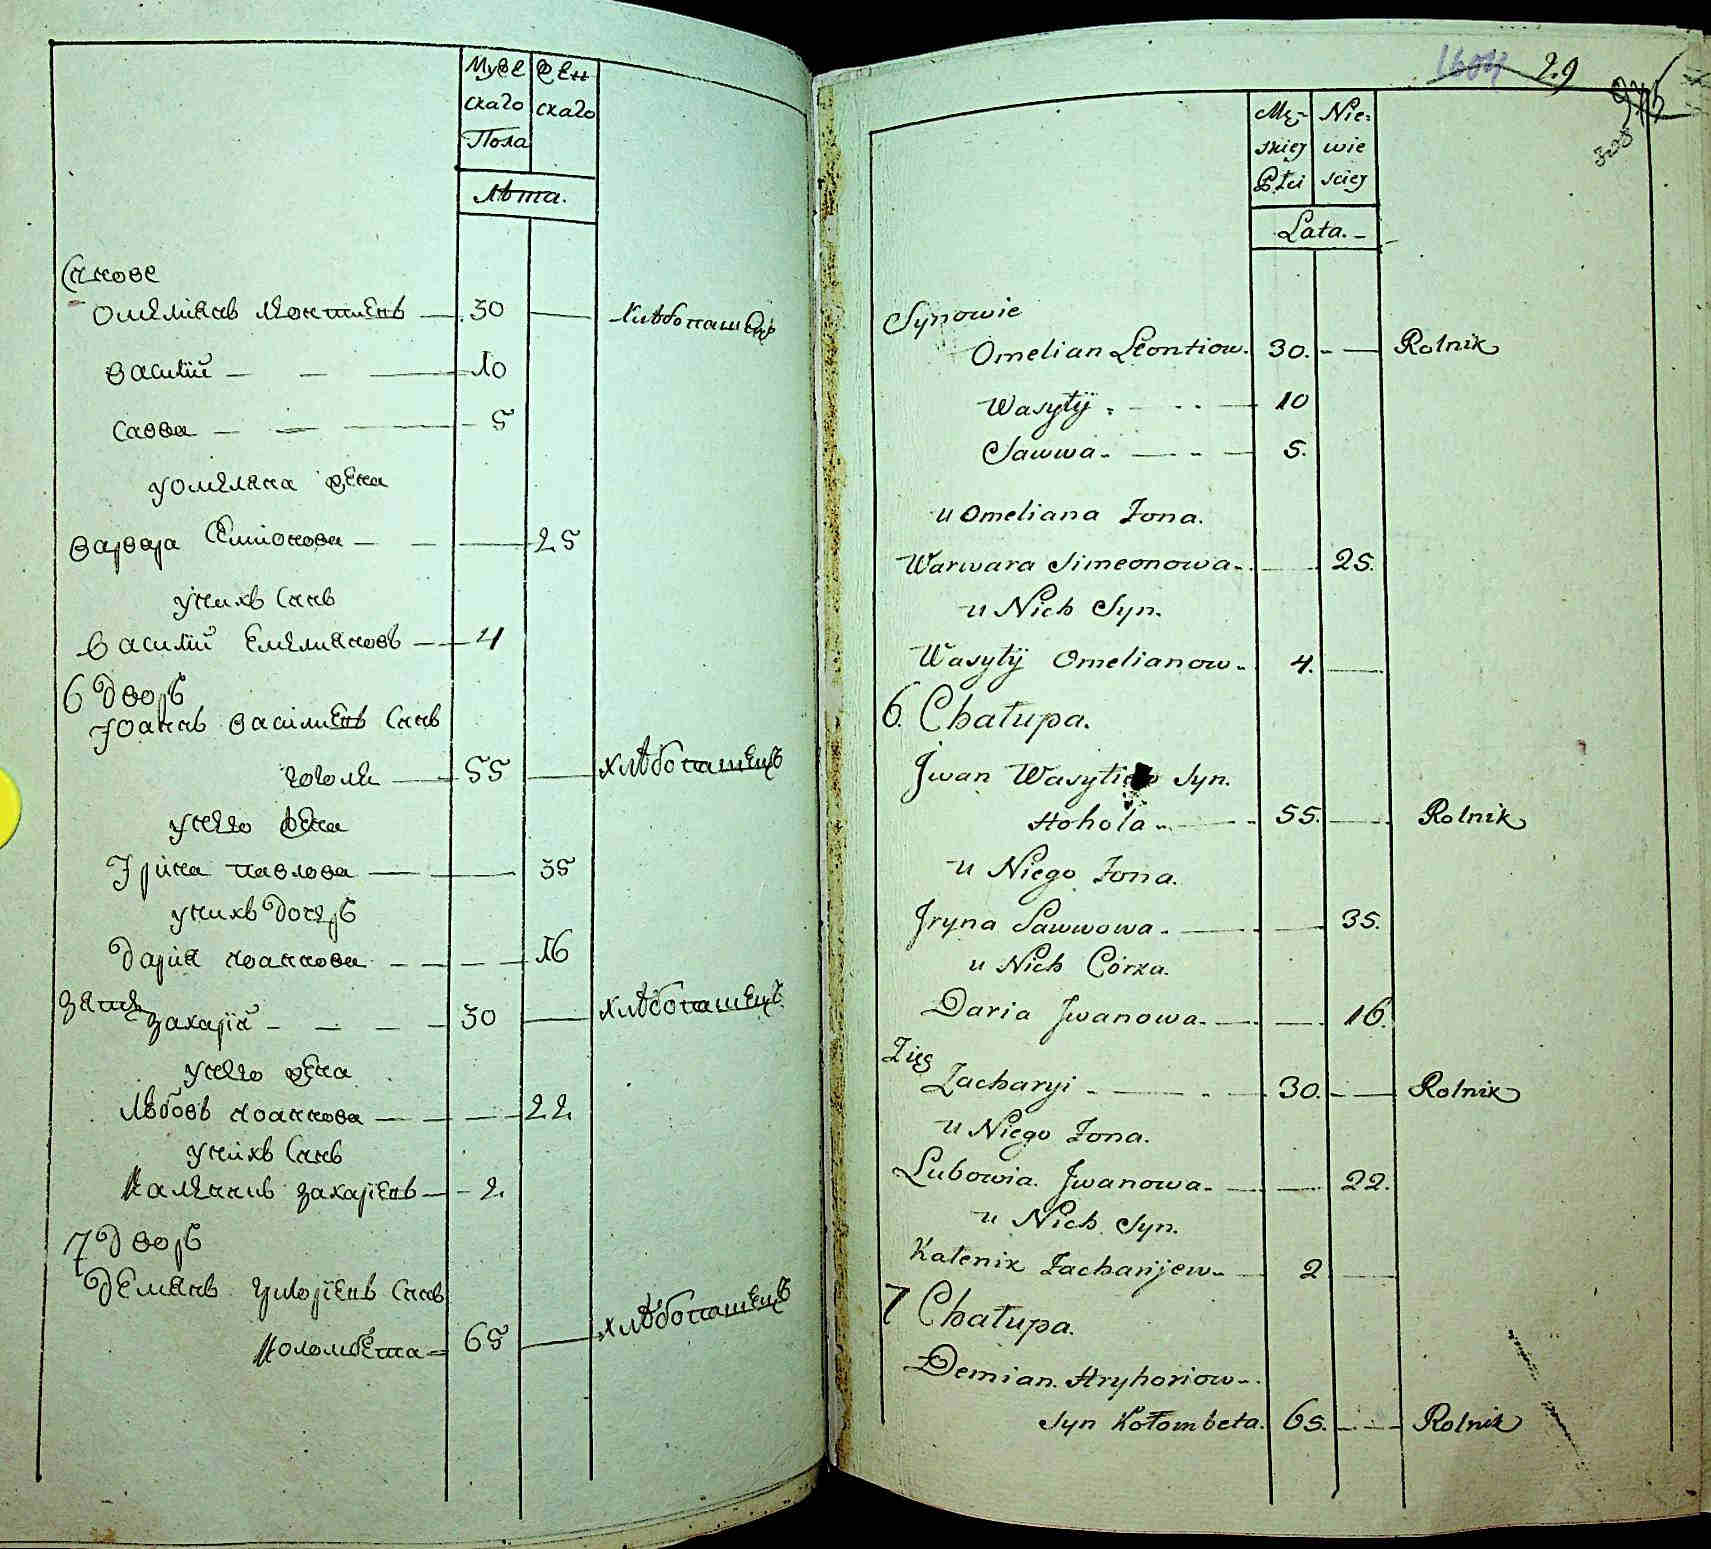 Муже Жен
скаго скаго
Пола
Лѣта.
Сынове
Омеліанъ Леонтіевъ 30 хлѣбопашецъ
Василій 10
Савва 5
у Омеляна жена
Варвара Семіонова 25
у нихъ сынъ
Василій Емеліановъ 4
6 дворъ
Іоаннъ Василіевъ сынъ
гоголь 55 хлѣбопашецъ
у него жена
Iрина павлова 35
у нихъ дочерь
Дарія иоаннова 16
Зять
Захарій 30 хлѣбопашецъ
у него жена
Любовь иоаннова 22
у нихъ сынъ
Каленикъ захаріевъ 2.
7 дворъ
Деміанъ григоріевъ сынъ
Коломбета 65 хлѣбопашецъ
1604 29
Mę- Nie-
skiej wie
Płci sciej
Lata.
Synowie
Omelian Leontiow. 30. Rolnik
Wasyłÿ 10
Sawwa 5.
u Omeliana Żona.
Warwara Simeonowa 25.
u Nich Syn.
Wasyłÿ Omelianow 4.
6. Chałupa.
Jwan Wasyliow Syn.
Hohola 55. Rolnik
u Niego Żona.
Jryna Sawwowa 35.
u Nich Córka.
Daria Jwanowa 16.
Zięć
Zacharyi 30. Rolnik
u Niego Żona.
Lubowia Jwanowa 22.
u Nich Syn.
Kałenik Zacharijew 2
7 Chałupa.
Demian Hryhoriow
Syn Kołombeta. 65. Rolnik